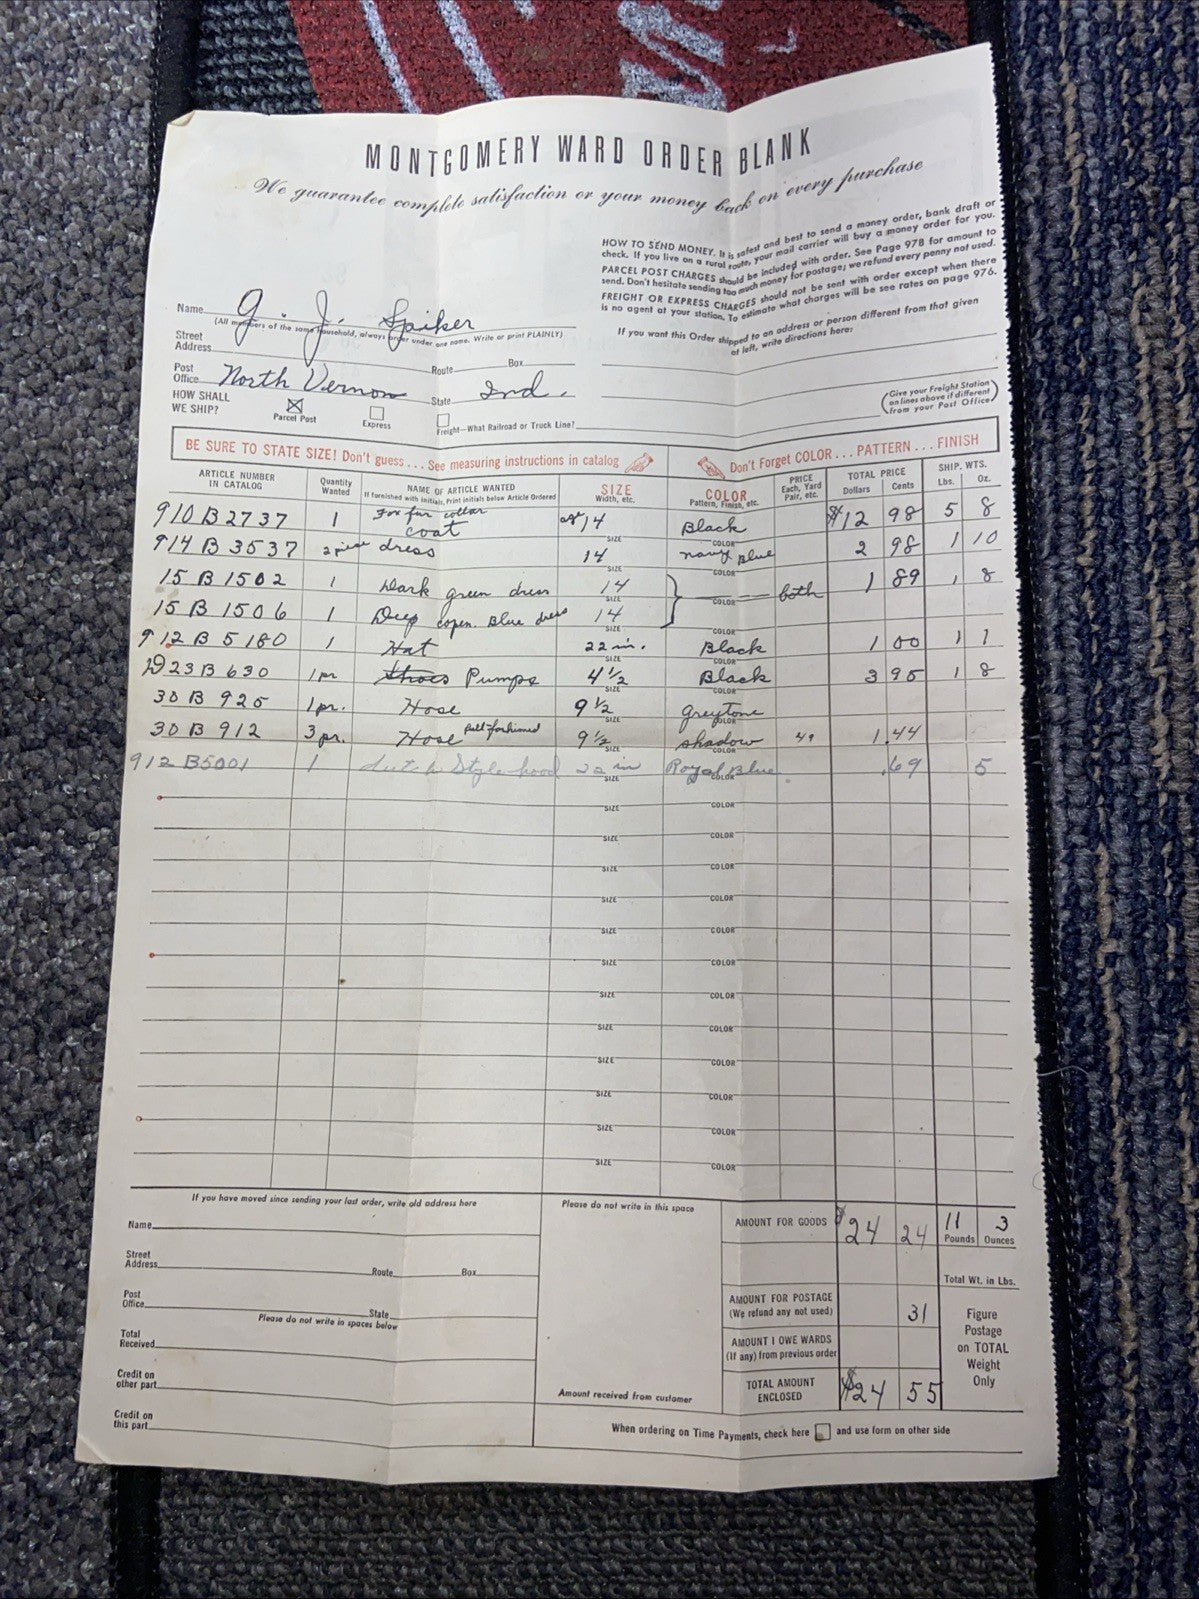 MONTGOMERY WARD ORDER BLANK
We guarantee complete satisfaction or your money back on every purchase
HOW TO SEND MONEY. It is safest and best to send a money order, bank draft or
check. If you live on a rural route, your mail carrier will buy a money order for you.
PARCEL POST CHARGES should be included with order. See Page 978 for amount to
send. Don't hesitate sending too much money for postage; we refund every penny not used.
FREIGHT OR EXPRESS CHARGES should not be sent with order except when there
is no agent at your station. To estimate what charges will be see rates on page 976.
If you want this Order shipped to an address or person different from that given
at left, write directions here:
Name G. J. Spiker
(All members of the same household, always order under one name. Write or print PLAINLY)
Street
Address Route Box
Post
Office North Vernon State Ind.
HOW SHALL
WE SHIP? Parcel Post Express Freight—What Railroad or Truck Line?
(Give your Freight Station
on lines above if different
from your Post Office)
BE SURE TO STATE SIZE! Don't guess . . . See measuring instructions in catalog Don't Forget COLOR . . . PATTERN . . . FINISH
ARTICLE NUMBER
IN CATALOG
Quantity
Wanted
NAME OF ARTICLE WANTED
If furnished with Initials, Print initials below Article Ordered
SIZE
Width, etc.
COLOR
Pattern, Finish, etc.
PRICE
Each, Yard
Pair, etc.
TOTAL PRICE
Dollars Cents
SHIP. WTS.
Lbs. Oz.
910 B 2737 1 Fox fur collar coat 14 SIZE Black COLOR $12 98 5 8
914 B 3537 2 piece dress 14 SIZE navy Blue COLOR 2 98 1 10
15 B 1502 1 Dark green dress 14 SIZE COLOR both 1 89 1 8
15 B 1506 1 Deep copen. Blue dress 14 SIZE COLOR
912 B 5180 1 Hat 22 in. SIZE Black COLOR 1 00 1 1
23 B 630 1 pr Shoes Pumps 4 1/2 SIZE Black COLOR 3 95 1 8
30 B 925 1 pr. Hose 9 1/2 SIZE greytone COLOR
30 B 912 3 pr. Hose full fashioned 9 1/2 SIZE shadow COLOR 49 1.44
912 B5001 1 dutch Style hood 22 in SIZE Royal Blue. COLOR .69 5
SIZE COLOR
SIZE COLOR
SIZE COLOR
SIZE COLOR
SIZE COLOR
SIZE COLOR
SIZE COLOR
SIZE COLOR
SIZE COLOR
SIZE COLOR
SIZE COLOR
SIZE COLOR
If you have moved since sending your last order, write old address here
Name
Street
Address Route Box
Post
Office State
Please do not write in spaces below
Total
Received
Credit on
other part
Credit on
this part
Please do not write in this space
Amount received from customer
AMOUNT FOR GOODS $24 24 11 Pounds 3 Ounces
Total Wt. in Lbs.
AMOUNT FOR POSTAGE
(We refund any not used) 31
AMOUNT I OWE WARDS
(If any) from previous order
TOTAL AMOUNT
ENCLOSED $24 55
Figure
Postage
on TOTAL
Weight
Only
When ordering on Time Payments, check here and use form on other side